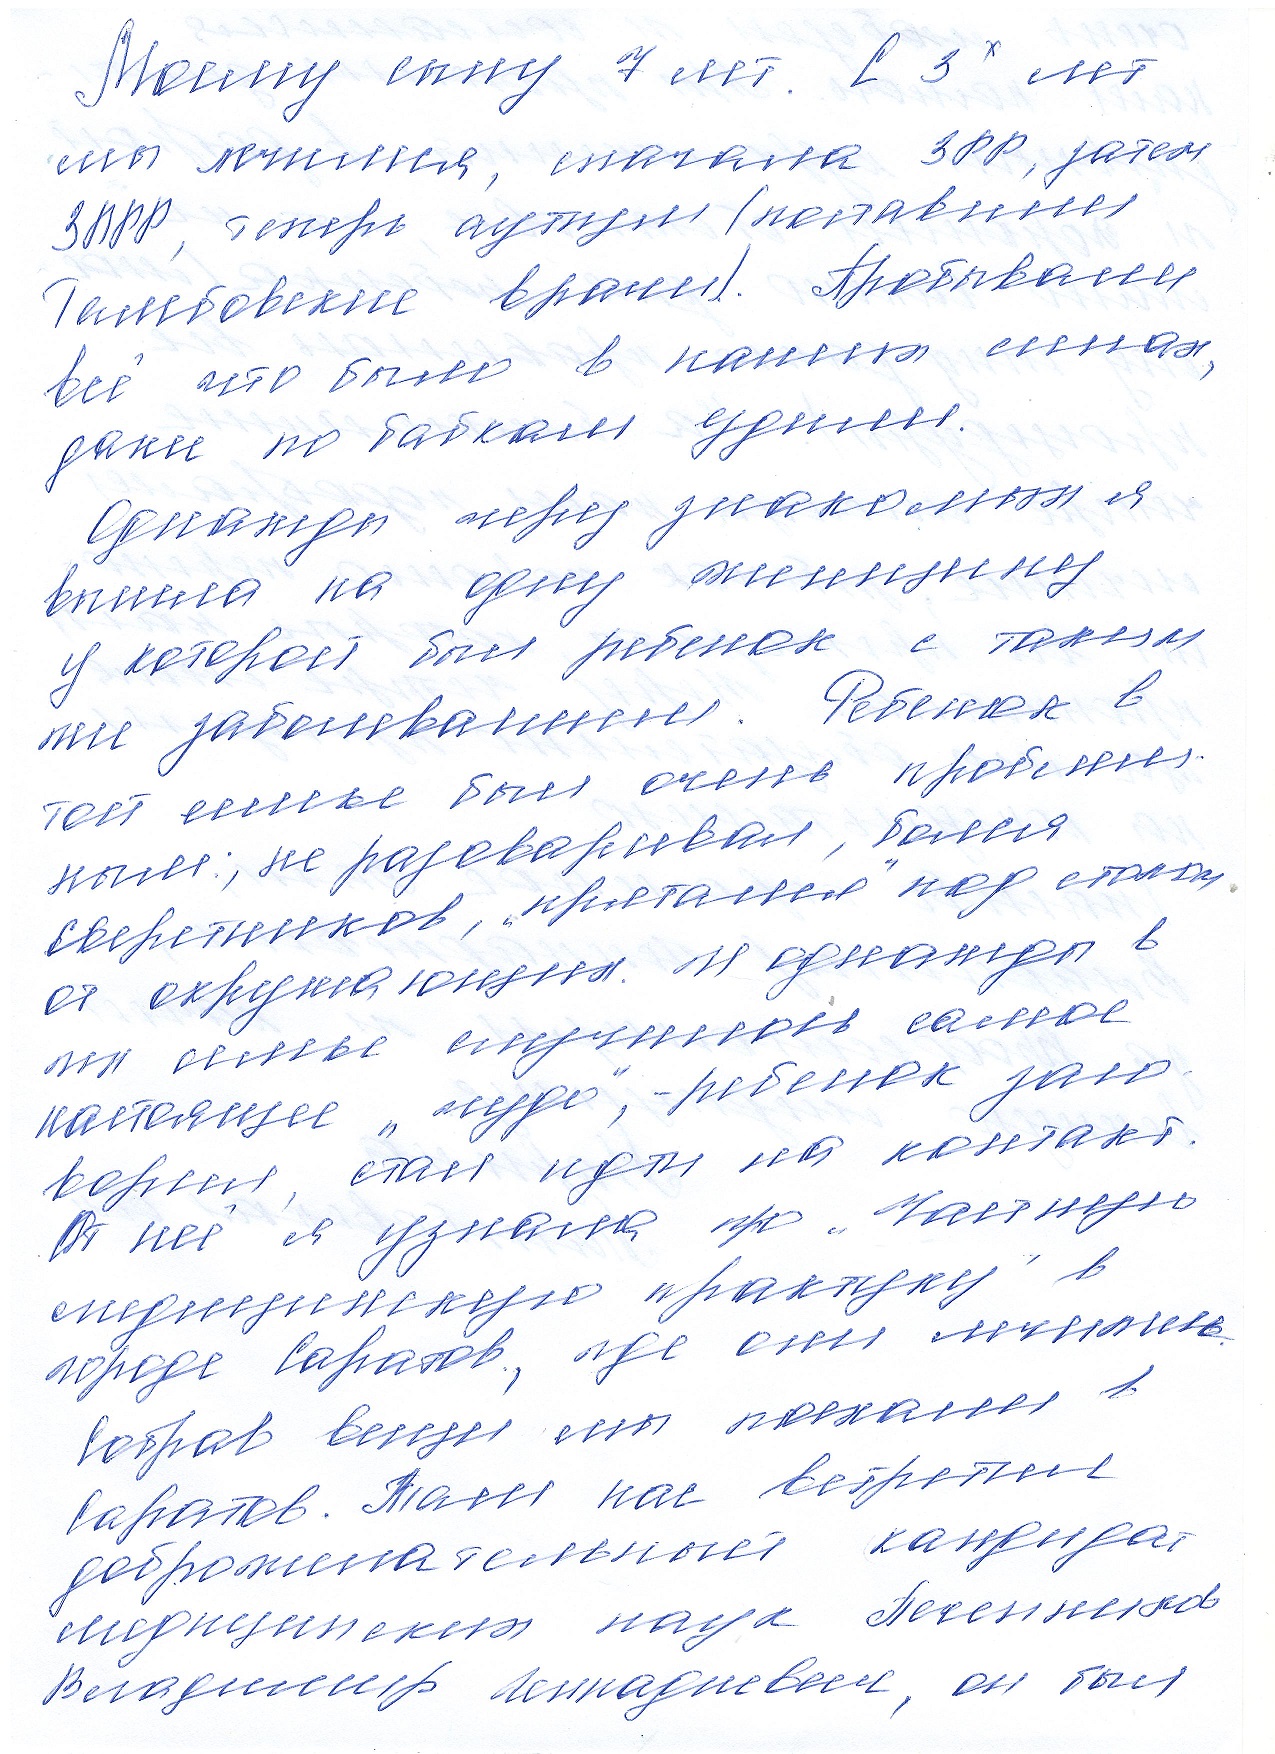 Моему сыну 7 лет. С 3х лет
мы лечимся, сначала ЗРР, затем
ЗПРР, теперь аутизм (поставили
Тамбовские врачи). Пробывали
всё что было в наших силах,
даже по бабкам ездили.
Однажды через знакомых я
вышла на одну женщину
у которой был ребенок с таким
же заболеванием. Ребенок в
той семье был очень проблем-
ным:, не разговаривал, боялся
сверстников, „прятался" под столом
от окружающих. И однажды в
их семье случилось самое
настоящее „чудо", - ребенок заго-
ворил, стал идти на контакт.
От неё я узнала про „Частную
медицинскую практику" в
городе Саратов, где они лечились.
Собрав вещи мы поехали в
Саратов. Там нас встретил
доброжелательный кандидат
медицинских наук
Владимир Геннадиевич, он был